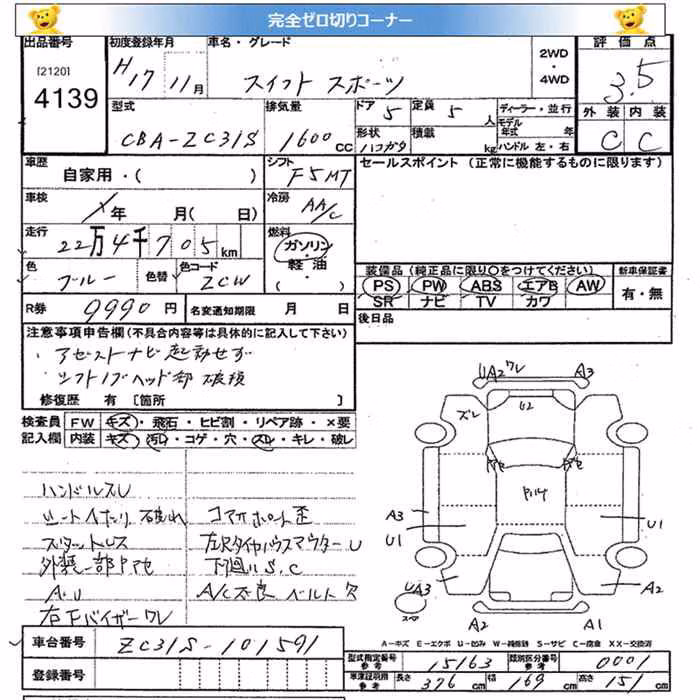 完全ゼロ切りコーナー
出品番号 初度登録年月 車名・グレード 2WD・4WD 評価点
[2120] 4139 H17 11月 スイフト スポーツ 3.5
型式 排気量 ドア 5 定員 5 人 ディーラー・並行 外装 内装
CBA-ZC31S 1600 CC 形状 ハコガタ 積載 kg モデル年式 年 ハンドル 左・右 C C
車歴 自家用・( ) シフト F5MT セールスポイント (正常に機能するものに限ります)
車検 年 月( 日) 冷房 AA/C
走行 22万4千705km 燃料 ガソリン・軽油・( )
色 ブルー 色替 色コード ZCW
装備品(純正品に限り○をつけてください) 新車保証書
PS PW ABS エアB AW 有・無
SR ナビ TV カワ
R券 9990円 名変通知期限 月 日 後日品
注意事項申告欄(不具合内容等は具体的に記入して下さい)
アゼストナビ起動せず
シフトノブヘッド部破損
修復歴 有 [箇所 ]
検査員記入欄 FW キズ・飛石・ヒビ割・リペア跡・×要
内装 キズ・汚レ・コゲ・穴・スレ・キレ・破レ
ハンドルスレ
シートイタミ 破れ コマオホート歪
スタットレス 左Rタイヤハウスアウターu
外装一部ドアセ 下廻りS,C
A.U A/C不良 ベルト欠
右Fバイザーワレ
UA2 ワレ A3
ズレ U2
A3 U1 U1
UA3 A2
スペア A2 A1
A=キズ E=エクボ U=凹み W=補修跡 S=サビ C=腐食 XX=交換済
車台番号 ZC31S-101591
登録番号
型式指定番号 参考 15163 類別区分番号 参考 0001
車庫証明用 参考 長さ 376cm 幅 169cm 高さ 151cm